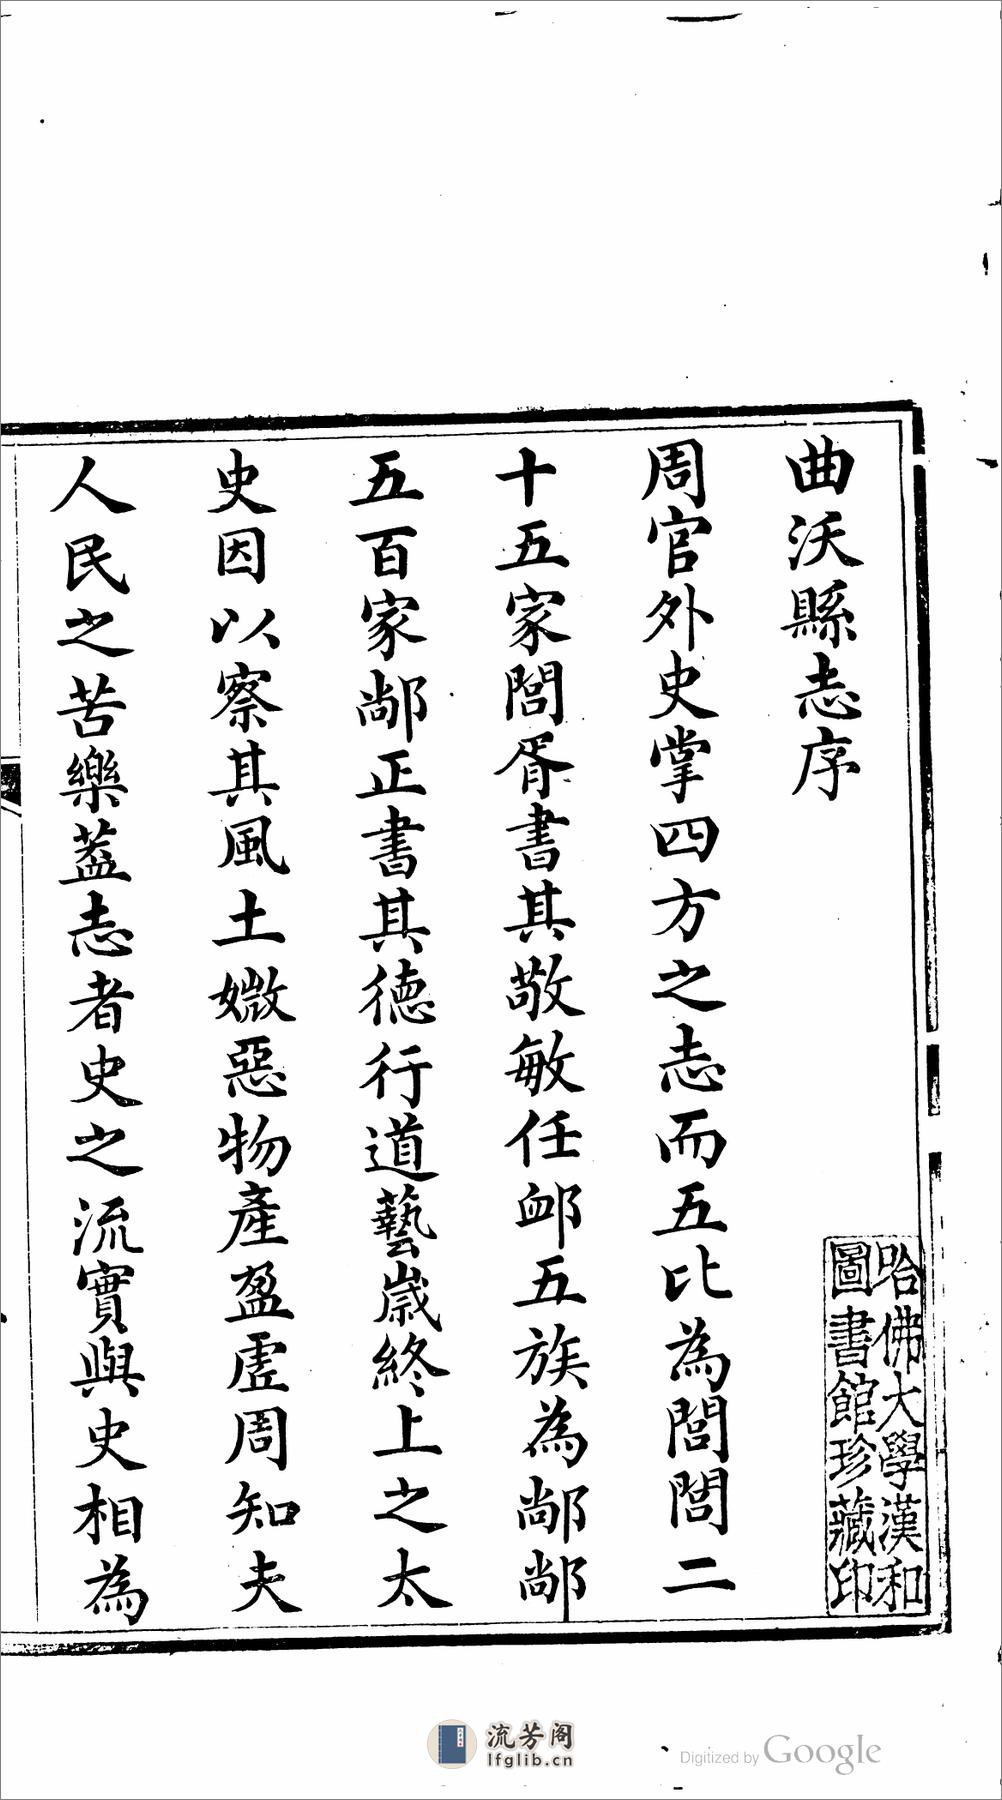 曲沃縣志序
周官外史掌四方之志而五比為閭閭二
十五家閭胥書其敬敏任卹五族為鄙鄙
五百家鄙正書其德行道藝歲終上之太
史因以察其風土媺惡物產盈虛周知夫
人民之苦樂葢志者史之流實與史相為
哈佛大學漢和
圖書館珍藏印
流芳阁
lfglib.cn
Digitized by Google